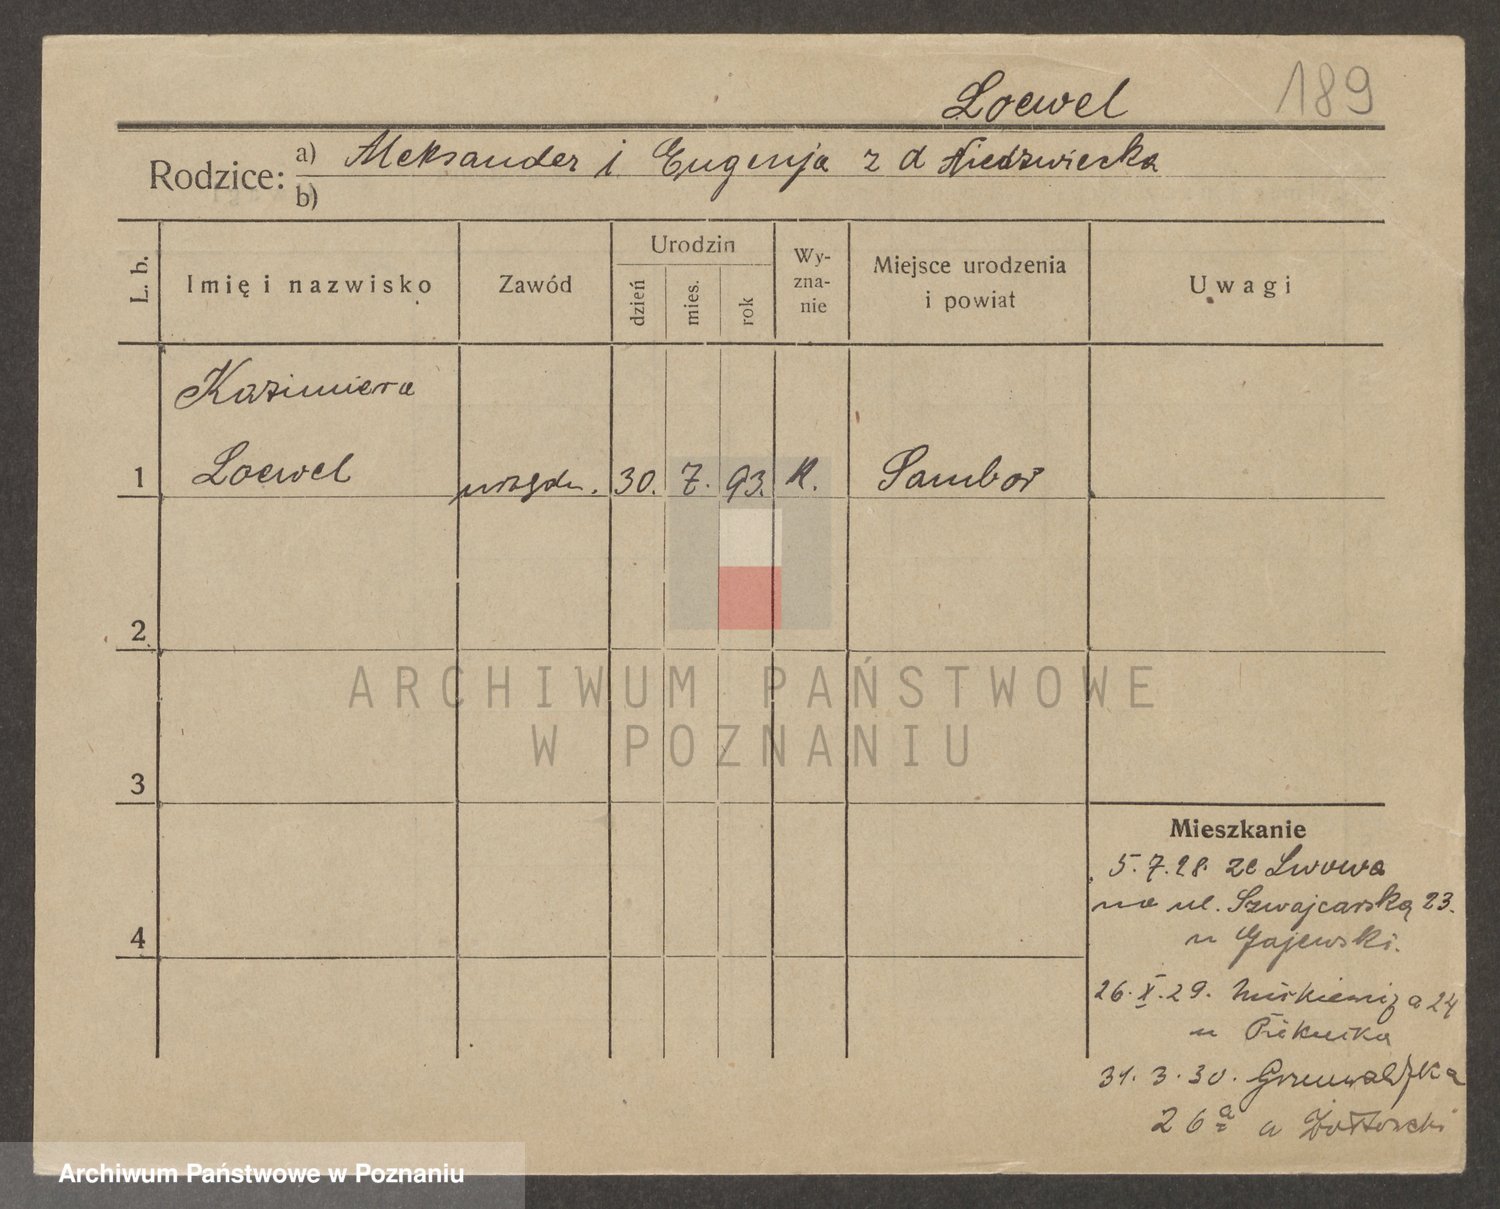 Loewel 189
Rodzice: a) Aleksander i Eugenja z d Niedzwiecka
b)
L. b. Imię i nazwisko Zawód Urodzin dzień mies. rok Wyznanie Miejsce urodzenia i powiat Uwagi
Kazimiera
1 Loewel 30. 7. 93. K. Sambor
2
3
4
Mieszkanie
5.7.28 ze Lwowa
na ul. Szwajcarską 23.
u Gajewski.
26.X.29. 24
u
31.3.30. Grunwaldzka
26a u
ARCHIWUM PAŃSTWOWE
W POZNANIU
Archiwum Państwowe w Poznaniu